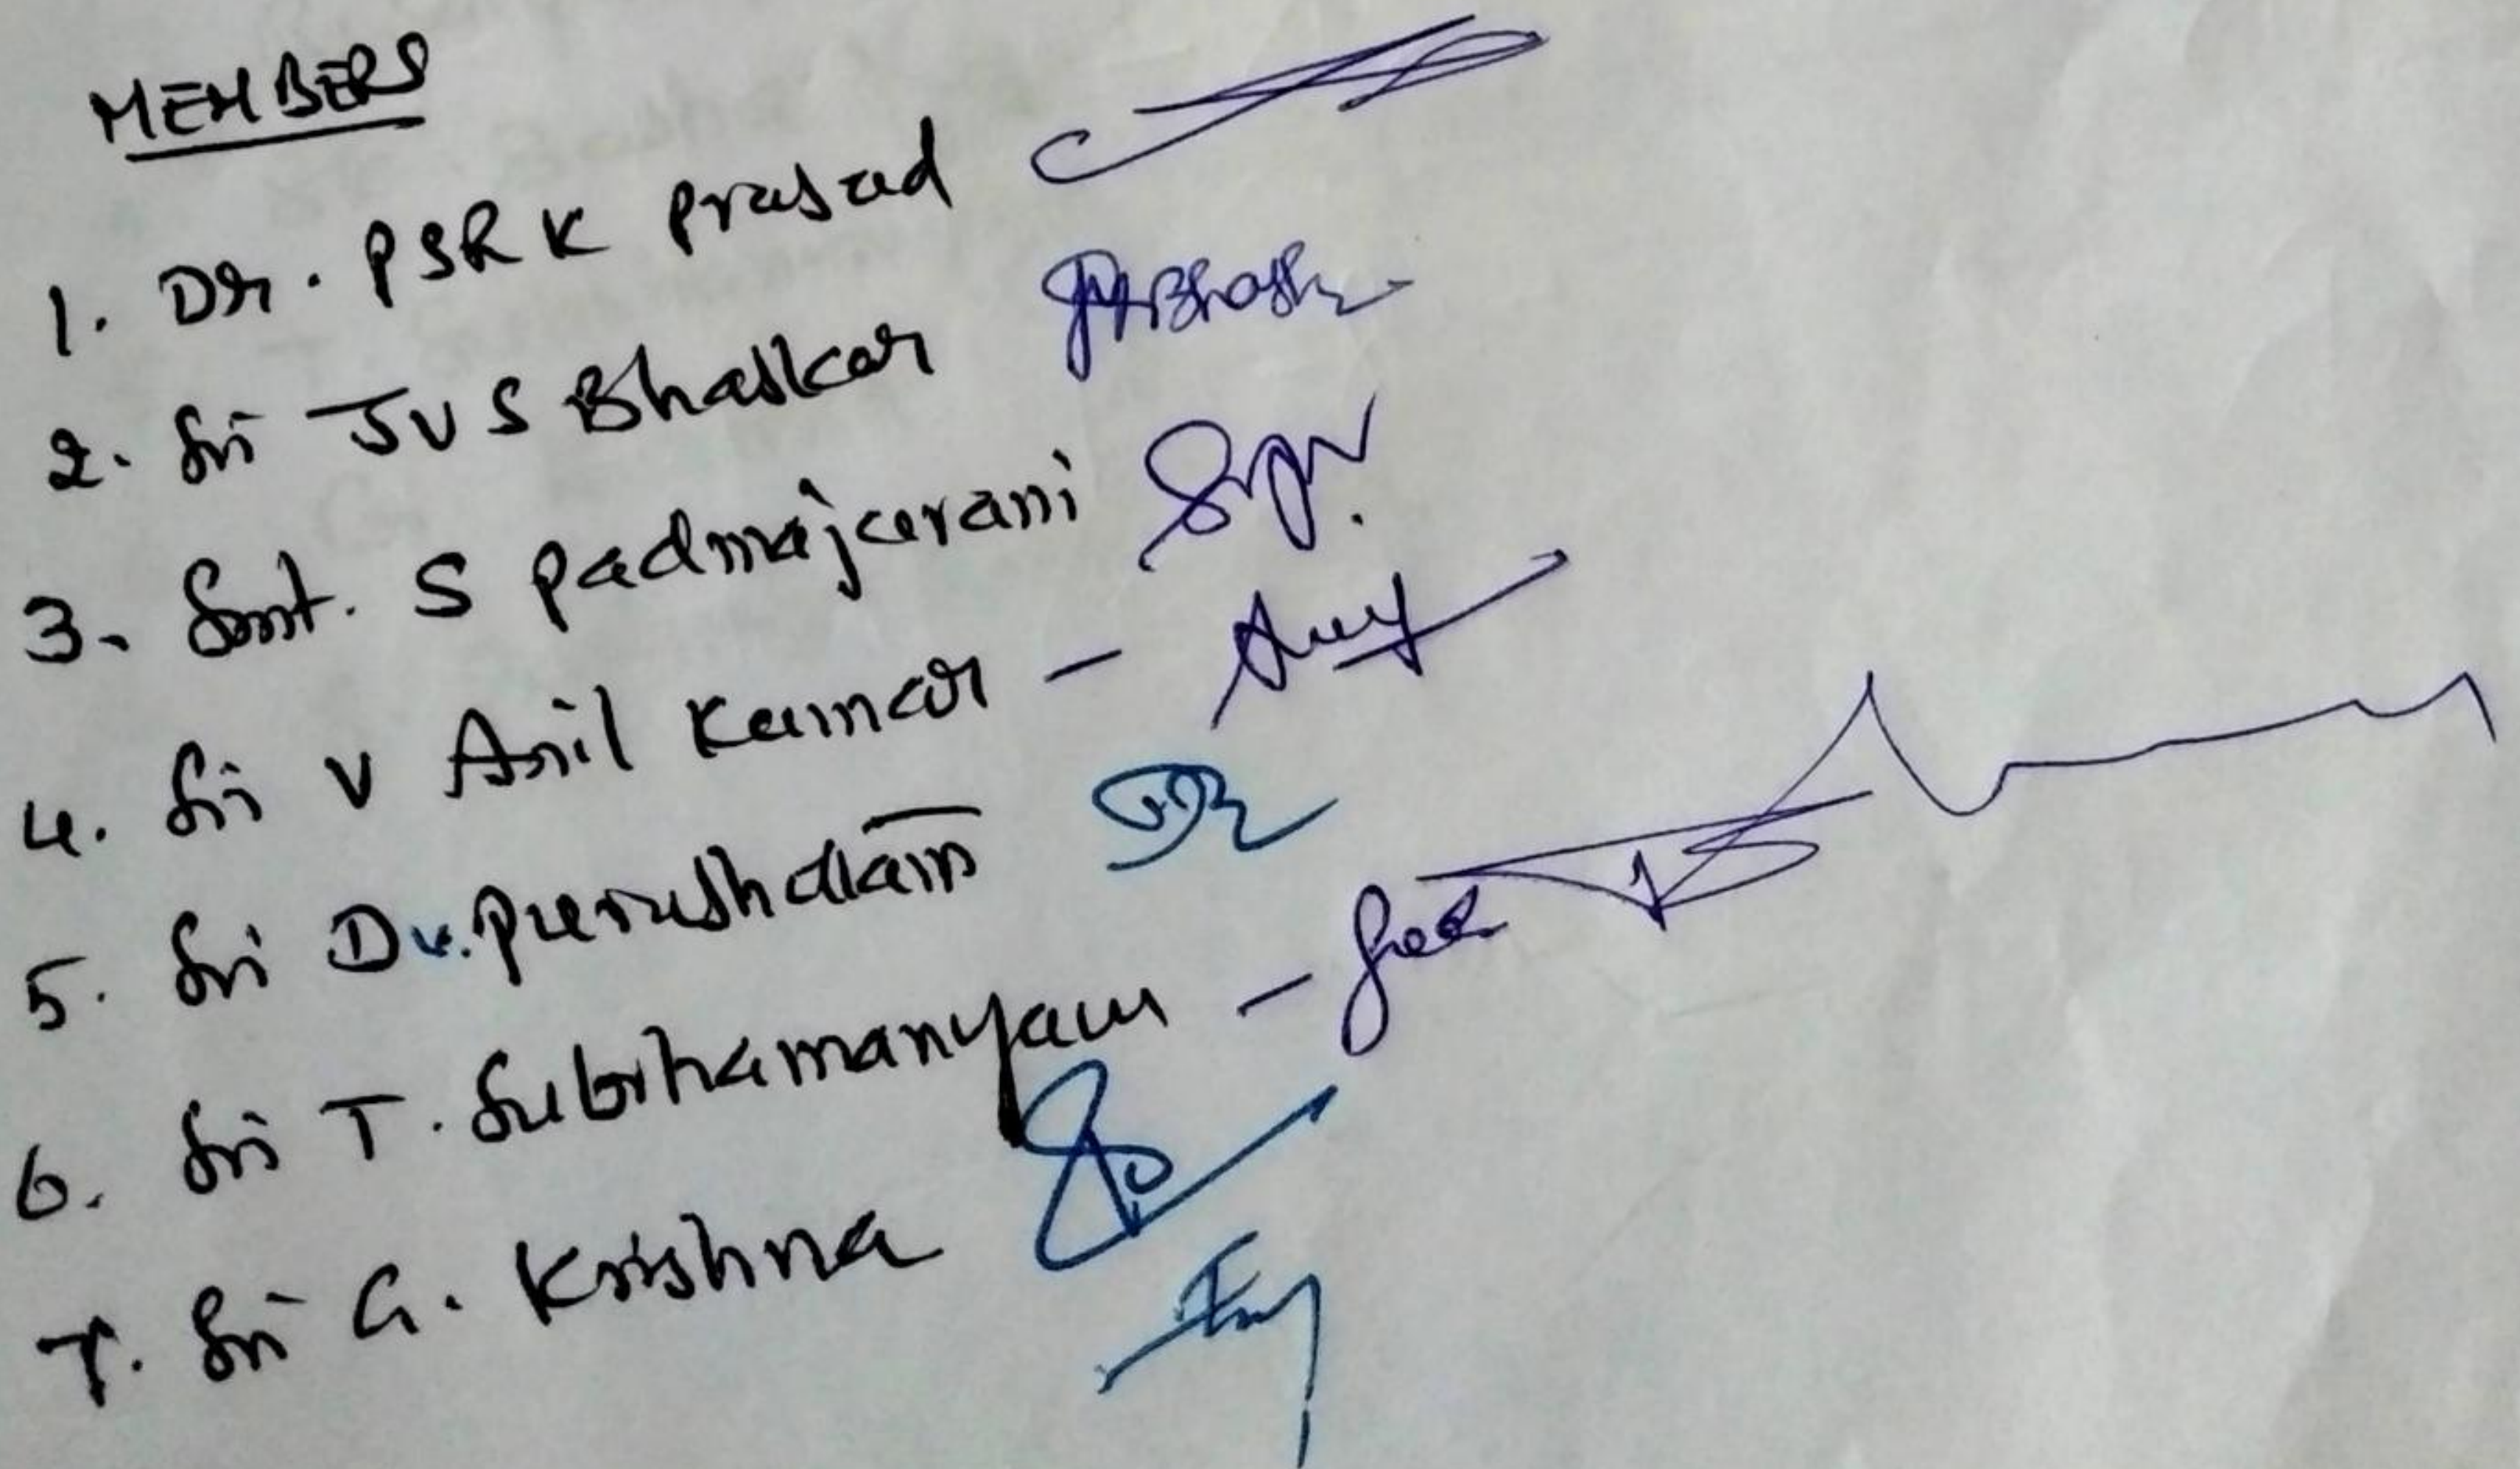 MEMBERS
1. Dr. PSRK Prasad
2. Sri JVS Bhaskar JVSBhaskar
3. Smt. S Padmajarani
4. Sri V Anil Kumar -
5. Sri Dv. Purushotam
6. Sri T. Subrhamanyam -
7. Sri G. Krishna